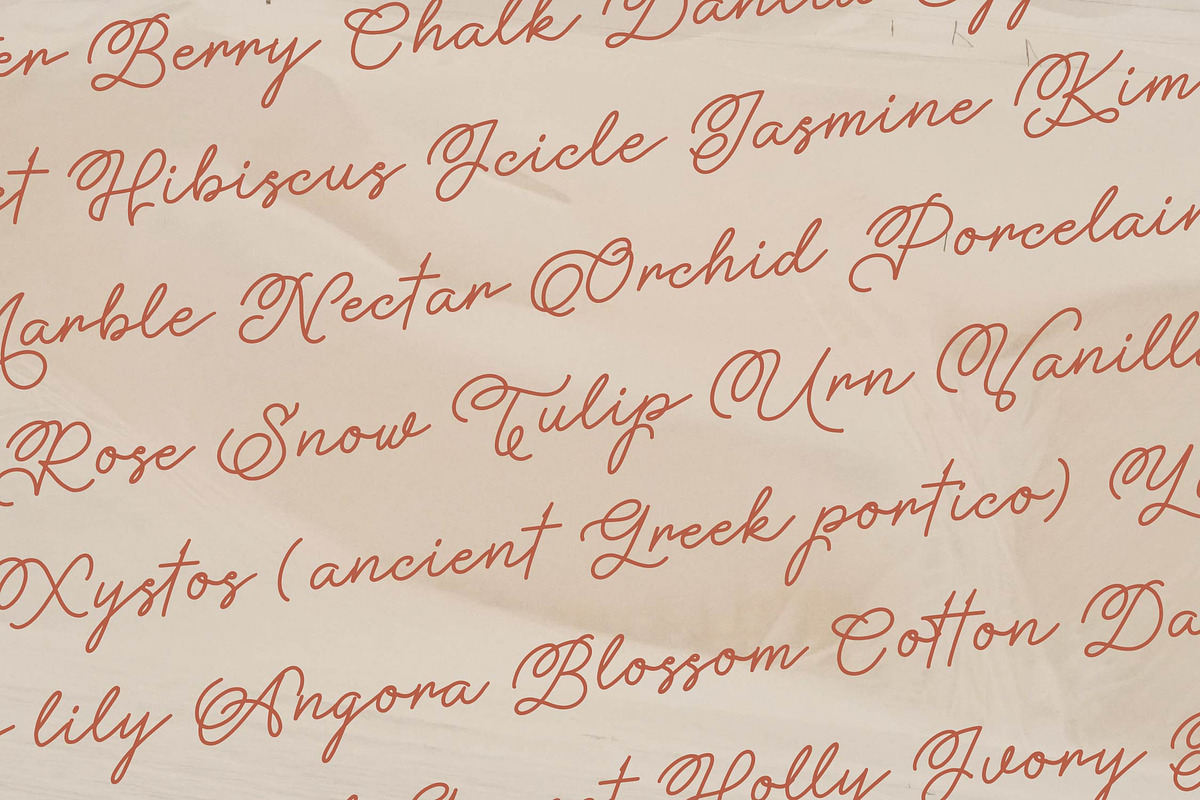 Berry Chalk
Hibiscus Icicle Jasmine Kim
Marble Nectar Orchid Porcelain
Rose Snow Tulip Urn Vanilla
Xystos (ancient Greek portico)
lily Angora Blossom Cotton Da
Holly Ivory